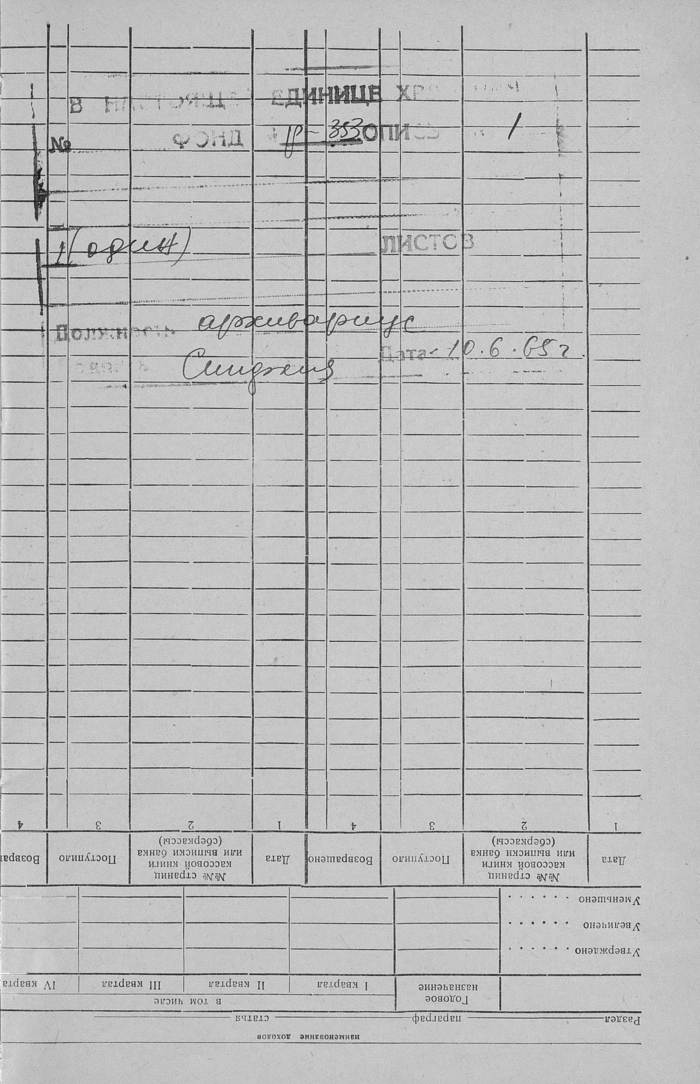 В ЕДИНИЦЕ
№ ФОНД р-353 ОПИСЬ 1
1 (один) ЛИСТОВ
Должность архивариус
Дата 10.6.65 г.
4 3 2 1 4 3 2 1
Дата №№ страниц кассовой книги или выписки банка (сберкассы) Поступило Возвращено Дата №№ страниц кассовой книги или выписки банка (сберкассы) Поступило Возвра
Уменьшено . . . . . .
Увеличено . . . . . .
Утверждено . . . . . .
Годовое назначение I квартал II квартал III квартал IV кварта
в том числе
Раздел параграф статья
наименование доходов